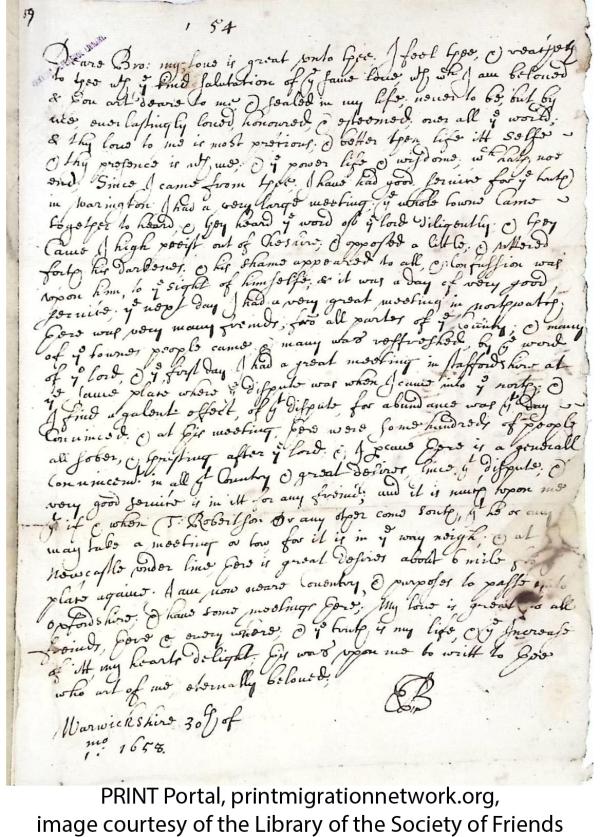 1 54
Deare Bro: my love is great vnto thee, I feel thee, & reatcheth
to thee wth ye kind salutation of ye same love wth wch I am beloved
& thou art deare to me & sealed in my life, never to be, but by
mee everlastingly loved honoured & esteemed over all ye world,
& thy love to me is most pretious, & better then life itt selfe
& thy presence is wth me, & ye power life & wisdome, wch hath noe
end. Since I came from thee, I have had good service for ye truth
in warington I had a very large meeting, ye whole towne came
together to heard, & they heard ye word of ye lord diligently, & they
came I high preist out of Cheshire, & opposed a litle, & vttered
forth his darkenes, & his shame appeared to all, & Confussion was
vpon him, to ye sight of himselfe, & it was a day of very good
service. ye next day I had a very great meeting in northwatch,
there was very many freinds, fro all partes of ye County, & many
of ye townes people came & many was reffreshed by ye word
of ye lord, & ye first day I had a great meeting in staffordshire at
ye same place where ye dispute was when I came into ye north, &
I find a galent effect, of yt dispute, for abundance was yt day
Convinced, & at this meeting, there were some hundreds of people
all sober, & thirsting after ye lord, & I pceave there is a generall
Convincemt in all yt Country & great desires since yt dispute, &
very good service is in itt for any freinds, and it is much vpon me
yt if & when T: Robertson or any other come south, yt he or any
may take a meeting or tow for it is in ye way neigh, & at
Newcastle vnder line there is great desires about 6 mile
place againe. I am now neare Coventry & purposes to passe into
oxfordshire, & have some meetings there, My love is great to all
freinds, there & every where, & ye truth is my life, & ye Increase
of itt my hearts delight, this was vpon me to writt to thee
who art of me eternally beloved,
EB
Warwickshire 30th of
1. mo 1658.
PRINT Portal, printmigrationnetwork.org,
image courtesy of the Library of the Society of Friends